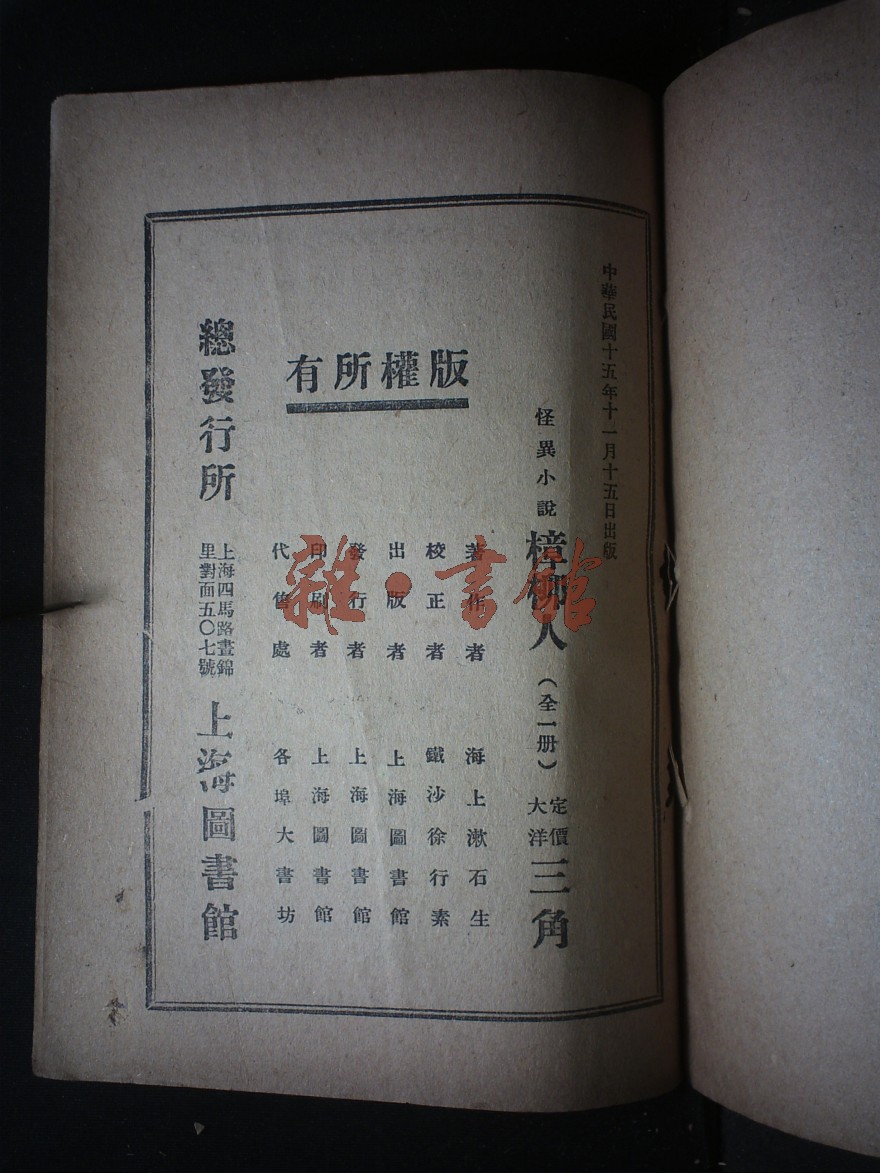 中華民國十五年十一月十五日出版
怪異小說 樟柳人（全一册）定價大洋三角
著作者 海上漱石生
校正者 鐵沙徐行素
出版者 上海圖書館
發行者 上海圖書館
印刷者 上海圖書館
代售處 各埠大書坊
版權所有
總發行所 上海四馬路晝錦里對面五〇七號 上海圖書館
雜·書館